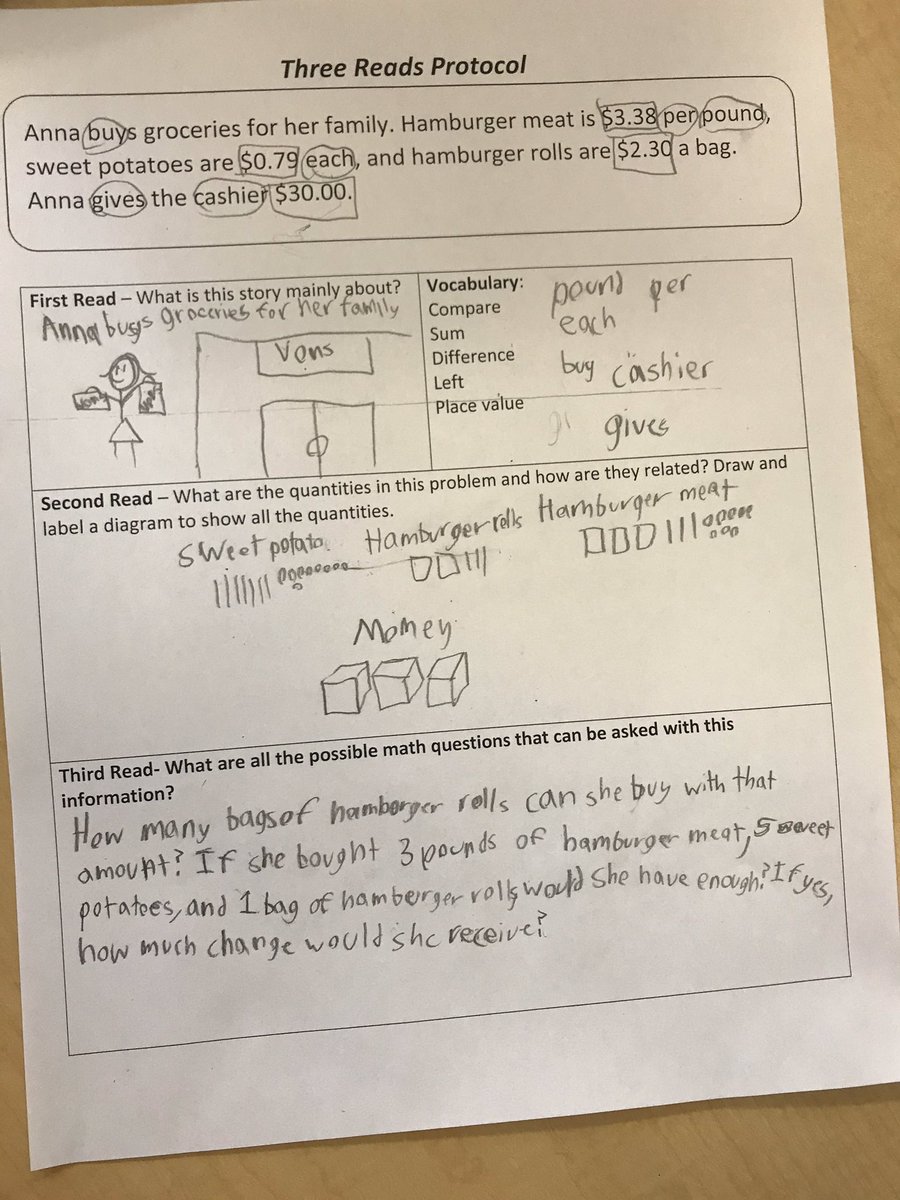 Three Reads Protocol
Anna buys groceries for her family. Hamburger meat is $3.38 per pound,
sweet potatoes are $0.79 each, and hamburger rolls are $2.30 a bag.
Anna gives the cashier $30.00.
First Read – What is this story mainly about?
Anna busys groceries for her family
Vons
Vons
Vons
Vocabulary:
Compare
Sum
Difference
Left
Place value
pound per
each
buy cashier
gives
Second Read – What are the quantities in this problem and how are they related? Draw and
label a diagram to show all the quantities.
Sweet potato. Hamburger rolls Hamburger meat
Money
Third Read- What are all the possible math questions that can be asked with this
information?
How many bags of hamborger rolls can she buy with that
amount? If she bought 3 pounds of hamburger meat, 5 sweet
potatoes, and 1 bag of hamburger rolls would she have enough? If yes,
how much change would she receive?